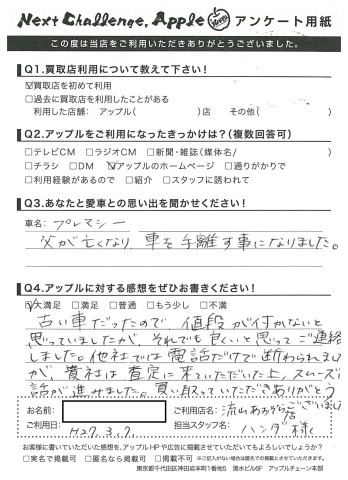 Next Challenge, Apple アンケート用紙
この度は当店をご利用いただきありがとうございました。
Q1.買取店利用について教えて下さい!
☑買取店を初めて利用
□過去に買取店を利用したことがある
利用した店舗: アップル( )店 その他( )
Q2.アップルをご利用になったきっかけは?(複数回答可)
□テレビCM □ラジオCM □新聞・雑誌(媒体名/ )
□チラシ □DM ☑アップルのホームページ □通りがかりで
□利用経験があるので □紹介 □スタッフに誘われて
Q3.あなたと愛車との思い出を聞かせください!
車名: プレマシー
父が亡くなり 車を手離す事になりました。
Q4.アップルに対する感想をぜひお書きください!
☑大満足 □満足 □普通 □もう少し □不満
古い車だったので、値段が付かないと
思っていましたが、それでも良いと思ってご連絡
しました。他社では電話だけで断わられました
が、貴社は査定に来ていただいた上、スムーズに
話が進みました。買い取っていただきありがとう
ございました
お名前:
ご利用店名: 流山おおたか店
ご利用日: H27.3.7.
担当スタッフ名: ハンダ様
お客様に書いていただいた感想を、アップルHPや広告に掲載させていただいてもよろしいでしょうか?
□実名で掲載可 □匿名なら掲載可 □掲載不可 ※ご記入がない場合は匿名での掲載とさせていただきます。
東京都千代田区神田岩本町1番地5 清水ビル6F アップルチェーン本部